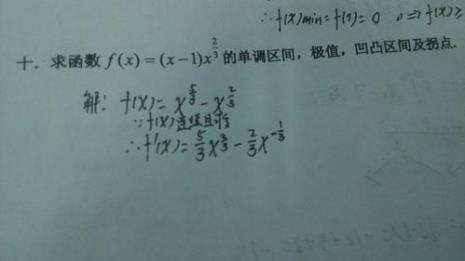 ∴f(x)min=f(1)=0 ,, ⇒ f(x)≥
十．求函数 f(x)=(x−1)x^{2/3} 的单调区间，极值，凹凸区间及拐点.
解: f(x)=x^{5/3}−x^{2/3}
∵f(x)连续且可
∴f'(x)=5/3 x^{2/3}−2/3 x^{−1/3}